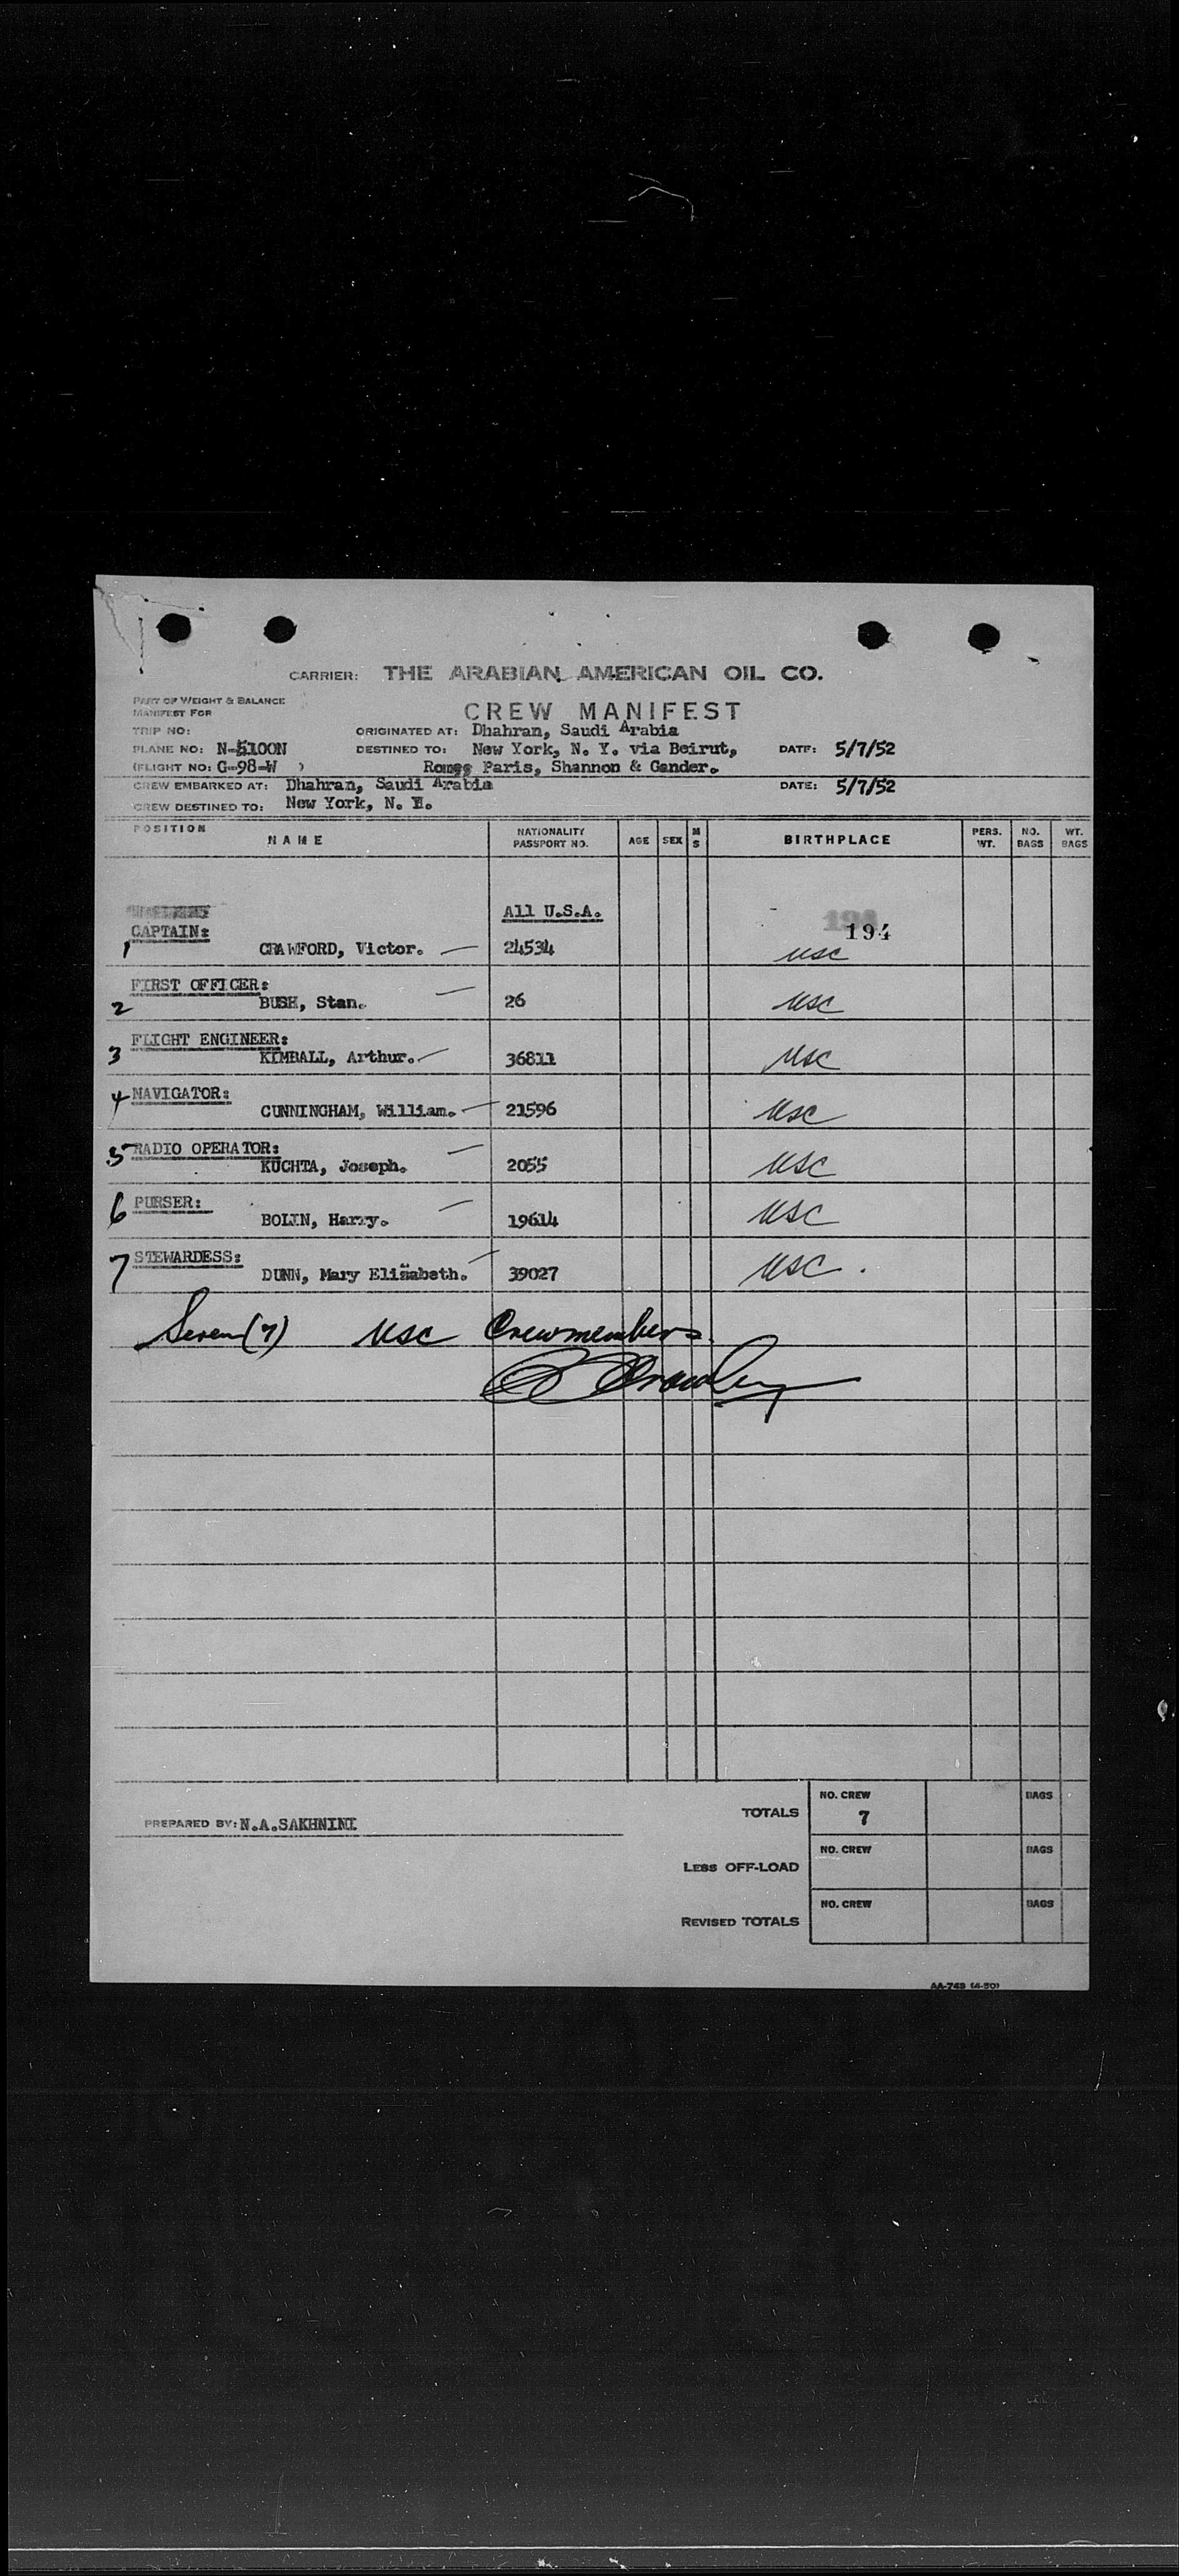 CARRIER: THE ARABIAN AMERICAN OIL CO.
PART OF WEIGHT & BALANCE
MANIFEST FOR
CREW MANIFEST
TRIP NO: ORIGINATED AT: Dhahran, Saudi Arabia
PLANE NO: N-5100N DESTINED TO: New York, N. Y. via Beirut, DATE: 5/7/52
(FLIGHT NO: G-98-W ) Rome, Paris, Shannon & Gander.
CREW EMBARKED AT: Dhahran, Saudi Arabia DATE: 5/7/52
CREW DESTINED TO: New York, N. Y.
POSITION NAME NATIONALITY PASSPORT NO. AGE SEX M S BIRTHPLACE PERS. WT. NO. BAGS WT. BAGS
All U.S.A.
CAPTAIN: 194
1 CRAWFORD, Victor. 24534 USC
FIRST OFFICER:
2 BUSH, Stan. 26 USC
FLIGHT ENGINEER:
3 KIMBALL, Arthur. 36811 USC
4 NAVIGATOR:
CUNNINGHAM, William. 21596 USC
5 RADIO OPERATOR:
KUCHTA, Joseph. 2055 USC
6 PURSER:
BOLIN, Harry. 19614 USC
7 STEWARDESS:
DUNN, Mary Elizabeth. 39027 USC.
Seven (7) USC Crewmembers
PREPARED BY: N.A.SAKHNINI
TOTALS NO. CREW 7 BAGS
LESS OFF-LOAD NO. CREW BAGS
REVISED TOTALS NO. CREW BAGS
AA-743 (4-50)